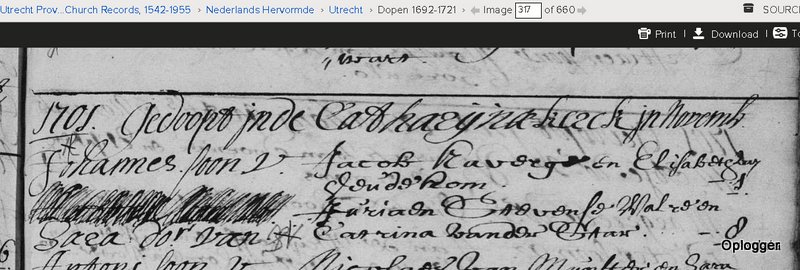 Utrecht Prov...Church Records, 1542-1955 › Nederlands Hervormde › Utrecht › Dopen 1692-1721 › Image 317 of 660 SOURC
Print Download To
1701. Gedoopt in de Catharijnekerck in Novemb.
Johannes soon v. Jacob Raverge en Elisabeth
1.
Juriaen Stevense en
Sara dor van Catrina vander Star. 8
Oplogger
Antoni soon v. Nicolaes van en Sara